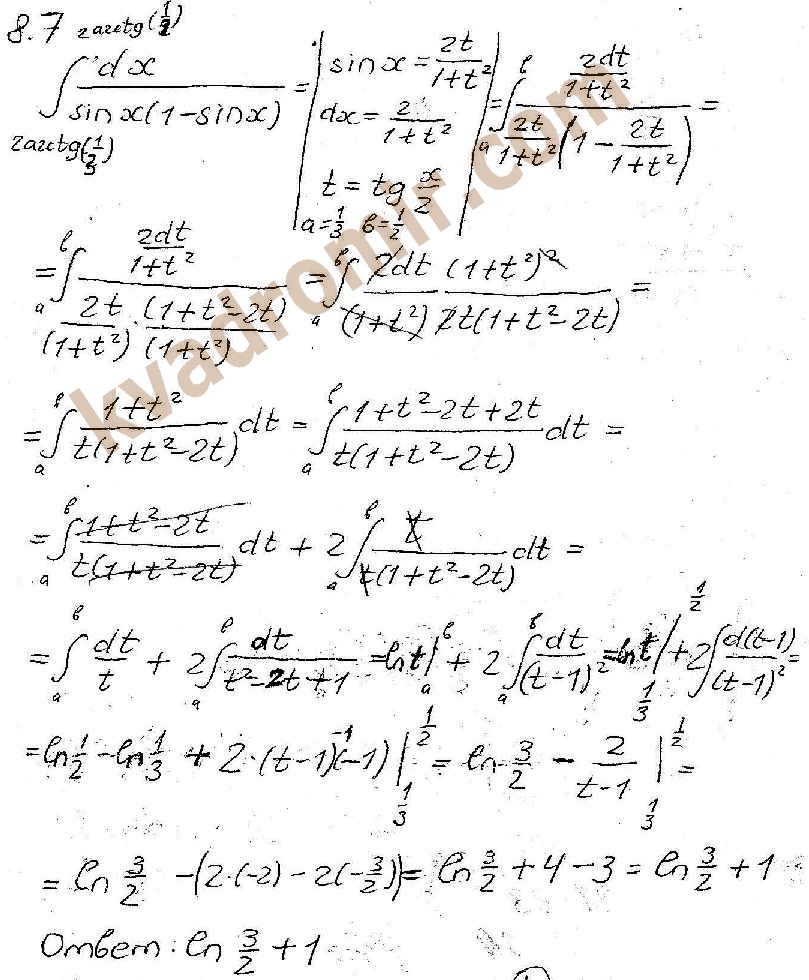 8.7 2arctg(1/2)
∫ dx / (sin x(1-sin x)) = | sin x = 2t/(1+t²) | = ∫ₐᵇ (2dt/(1+t²)) / ((2t/(1+t²))(1 - 2t/(1+t²))) =
2arctg(1/3) dx = 2/(1+t²)
t = tg x/2
a = 1/3 b = 1/2
= ∫ₐᵇ (2dt/(1+t²)) / ((2t/(1+t²)) · ((1+t²-2t)/(1+t²))) = ∫ₐᵇ (2dt (1+t²)²) / ((1+t²) 2t(1+t²-2t)) =
= ∫ₐᵇ (1+t²)/(t(1+t²-2t)) dt = ∫ₐᵇ (1+t²-2t+2t)/(t(1+t²-2t)) dt =
= ∫ₐᵇ (1+t²-2t)/(t(1+t²-2t)) dt + 2∫ₐᵇ t/(t(1+t²-2t)) dt =
= ∫ₐᵇ dt/t + 2∫ₐᵇ dt/(t²-2t+1) = ln t |ₐᵇ + 2∫ₐᵇ dt/(t-1)² = ln t |_{1/3}^{1/2} + 2∫ d(t-1)/(t-1)² =
= ln 1/2 - ln 1/3 + 2·(t-1)⁻¹(-1) |_{1/3}^{1/2} = ln 3/2 - 2/(t-1) |_{1/3}^{1/2} =
= ln 3/2 - (2·(-2) - 2(-3/2)) = ln 3/2 + 4 - 3 = ln 3/2 + 1
Ответ: ln 3/2 + 1
kvadromir.com